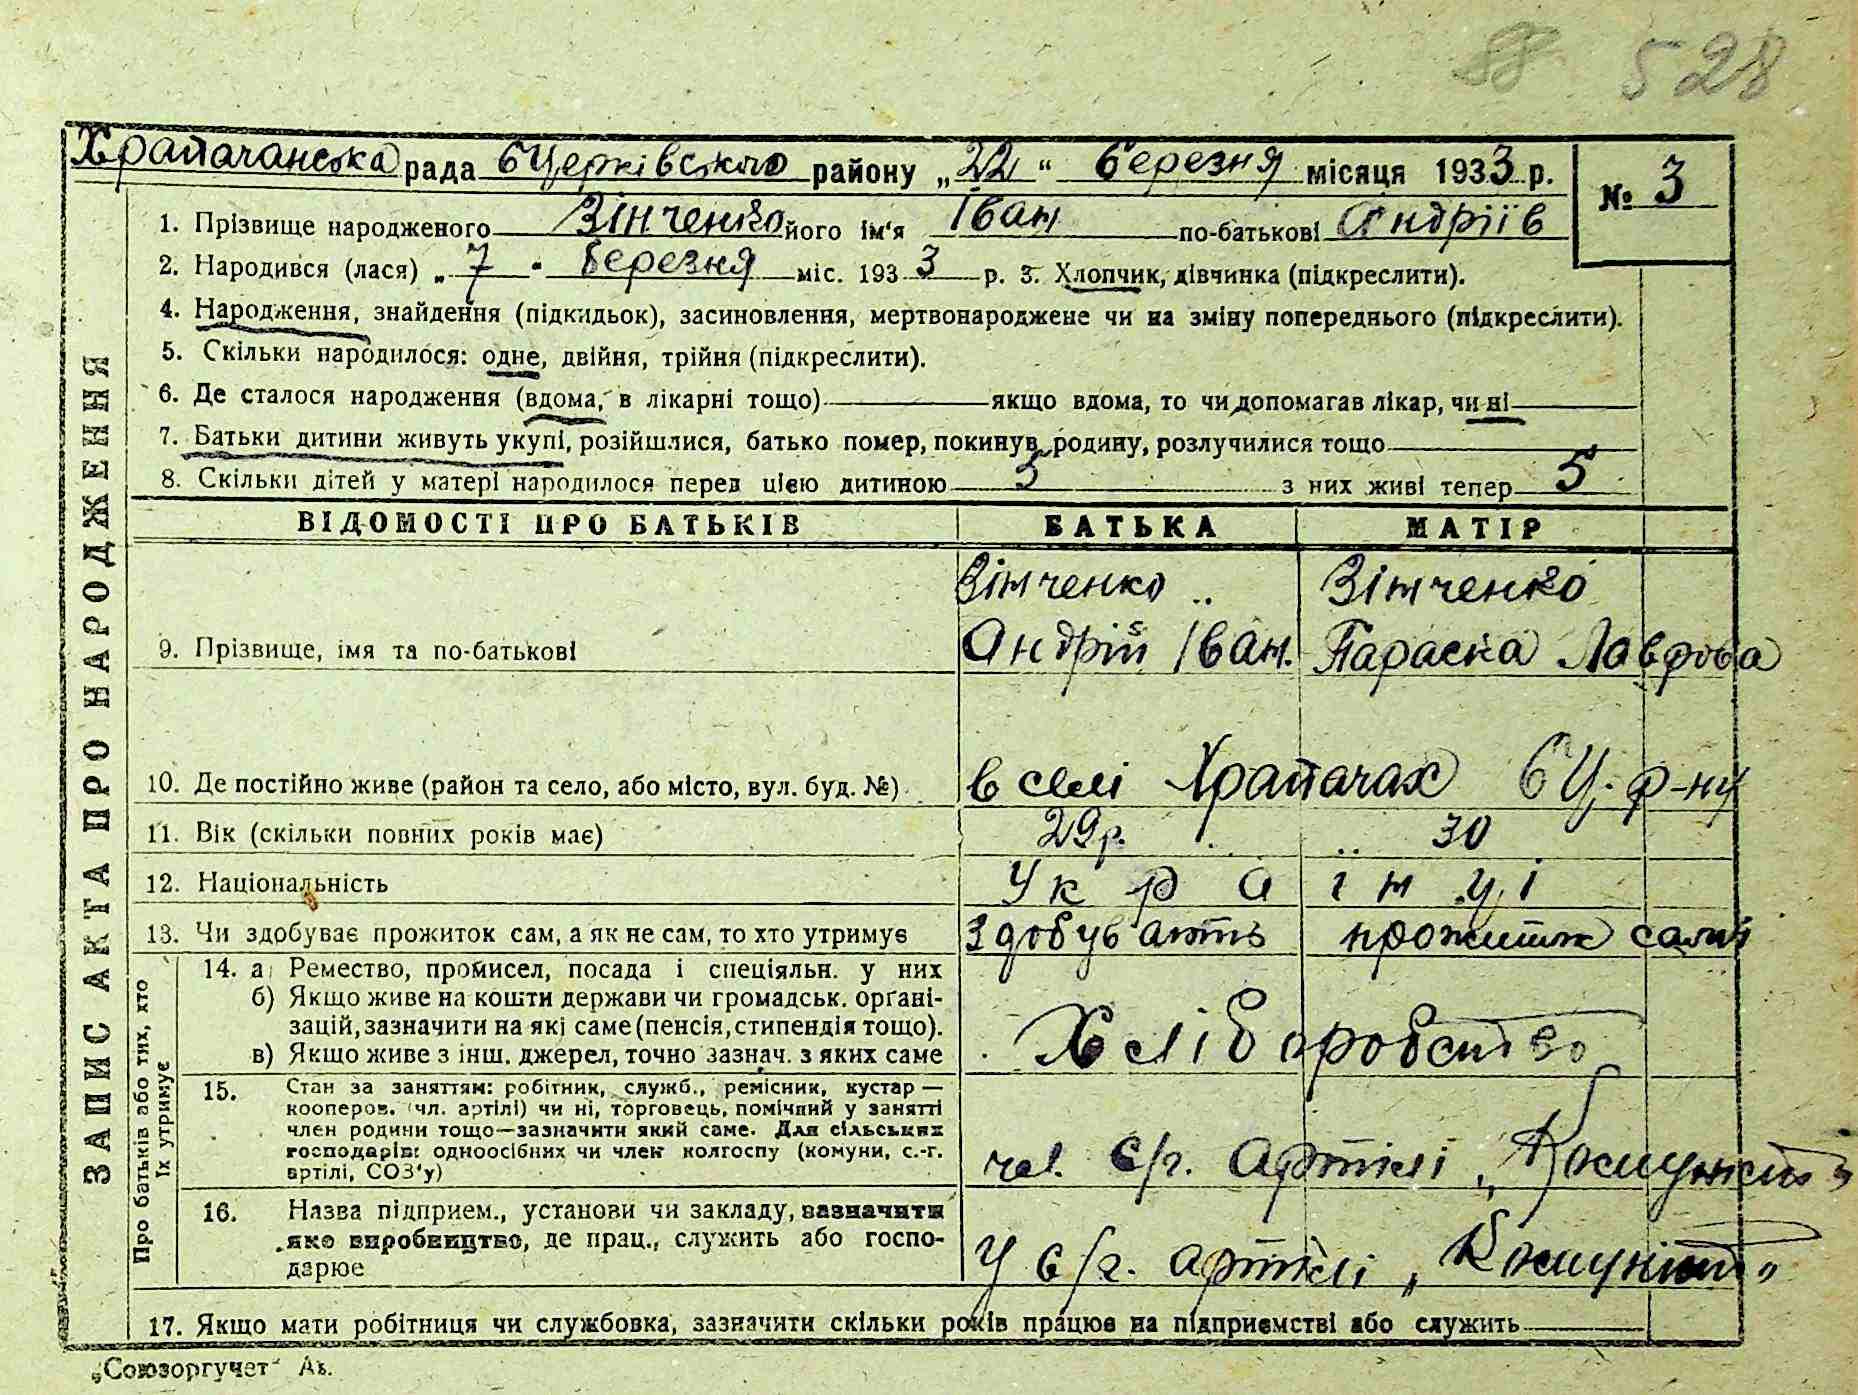 88 528
Храпачанська рада бЦерківського району „22“ березня місяця 1933 р. № 3
1. Прізвище народженого Зінченко його ім'я Іван по-батькові Андріїв
2. Народився (лася) „7" березня міс. 1933 р. 3. Хлопчик, дівчинка (підкреслити).
4. Народження, знайдення (підкидьок), засиновлення, мертвонароджене чи на зміну попереднього (підкреслити).
5. Скільки народилося: одне, двійня, трійня (підкреслити).
6. Де сталося народження (вдома, в лікарні тощо) якщо вдома, то чи допомагав лікар, чи ні
7. Батьки дитини живуть укупі, розійшлися, батько помер, покинув родину, розлучилися тощо
8. Скільки дітей у матері народилося перед цією дитиною 5 з них живі тепер 5
ЗАПИС АКТА ПРО НАРОДЖЕННЯ
ВІДОМОСТІ ПРО БАТЬКІВ БАТЬКА МАТІР
Зінченко Зінченко
9. Прізвище, імя та по-батькові Андрій Іван. Параска Лаврова
10. Де постійно живе (район та село, або місто, вул. буд. №) в селі Храпачах бЦ. р-ну
11. Вік (скільки повних років має) 29р. 30
12. Національність Українці
13. Чи здобуває прожиток сам, а як не сам, то хто утримує Здобувають прожиток самі
Про батьків або тих, хто
їх утримує
14. а) Ремество, промисел, посада і спеціяльн. у них
б) Якщо живе на кошти держави чи громадськ. орґані-
зацій, зазначити на які саме (пенсія, стипендія тощо).
в) Якщо живе з інш. джерел, точно зазнач. з яких саме Хліборобство
15. Стан за заняттям: робітник, служб., ремісник, кустар —
кооперов. (чл. артілі) чи ні, торговець, помічний у занятті
член родини тощо—зазначити який саме. Для сільських
господарів: одноосібних чи член колгоспу (комуни, с.-г.
артілі, СОЗ'у) чл. с/г. артілі „Комуніст"
16. Назва підприєм., установи чи закладу, зазначити
яке виробництво, де прац., служить або госпо-
дарює У с/г. артілі „Комуніст"
17. Якщо мати робітниця чи службовка, зазначити скільки років працює на підприємстві або служить
„Союзоргучет“ Ак.